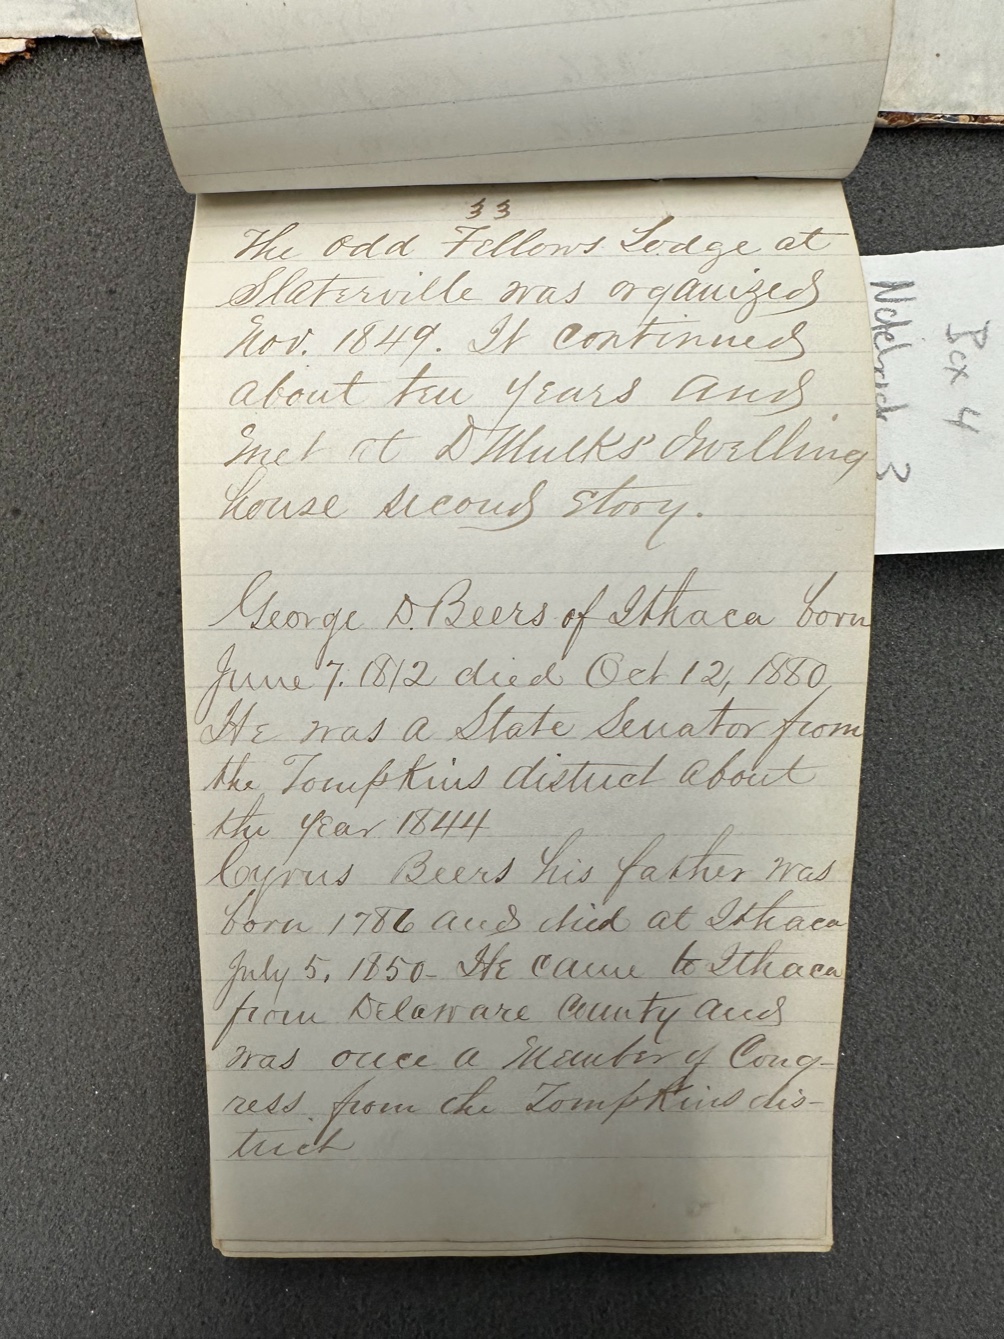 33
The Odd Fellows Lodge at
Slaterville was organized
Nov. 1849. It continued
about ten years and
met at D Mulks' dwelling
house second story.
George D. Beers of Ithaca born
June 7. 1812 died Oct 12, 1880
He was a State Senator from
the Tompkins district about
the year 1844
Cyrus Beers his father was
born 1786 and died at Ithaca
July 5, 1850- He came to Ithaca
from Delaware County and
was once a Member of Cong-
ress from the Tompkins dis-
trict
Box 4
Notebook 3